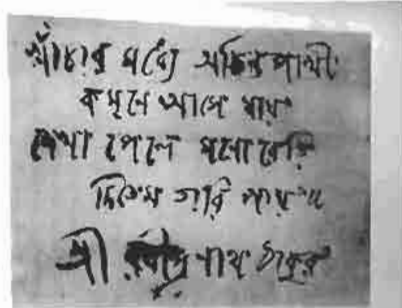 খাঁচার মধ্যে অচিন পাখী
কমনে আসে যায়
দেখা পেলে মনো বেড়ি
দিতেম তারি পায়॥
শ্রী রবীন্দ্রনাথ ঠাকুর